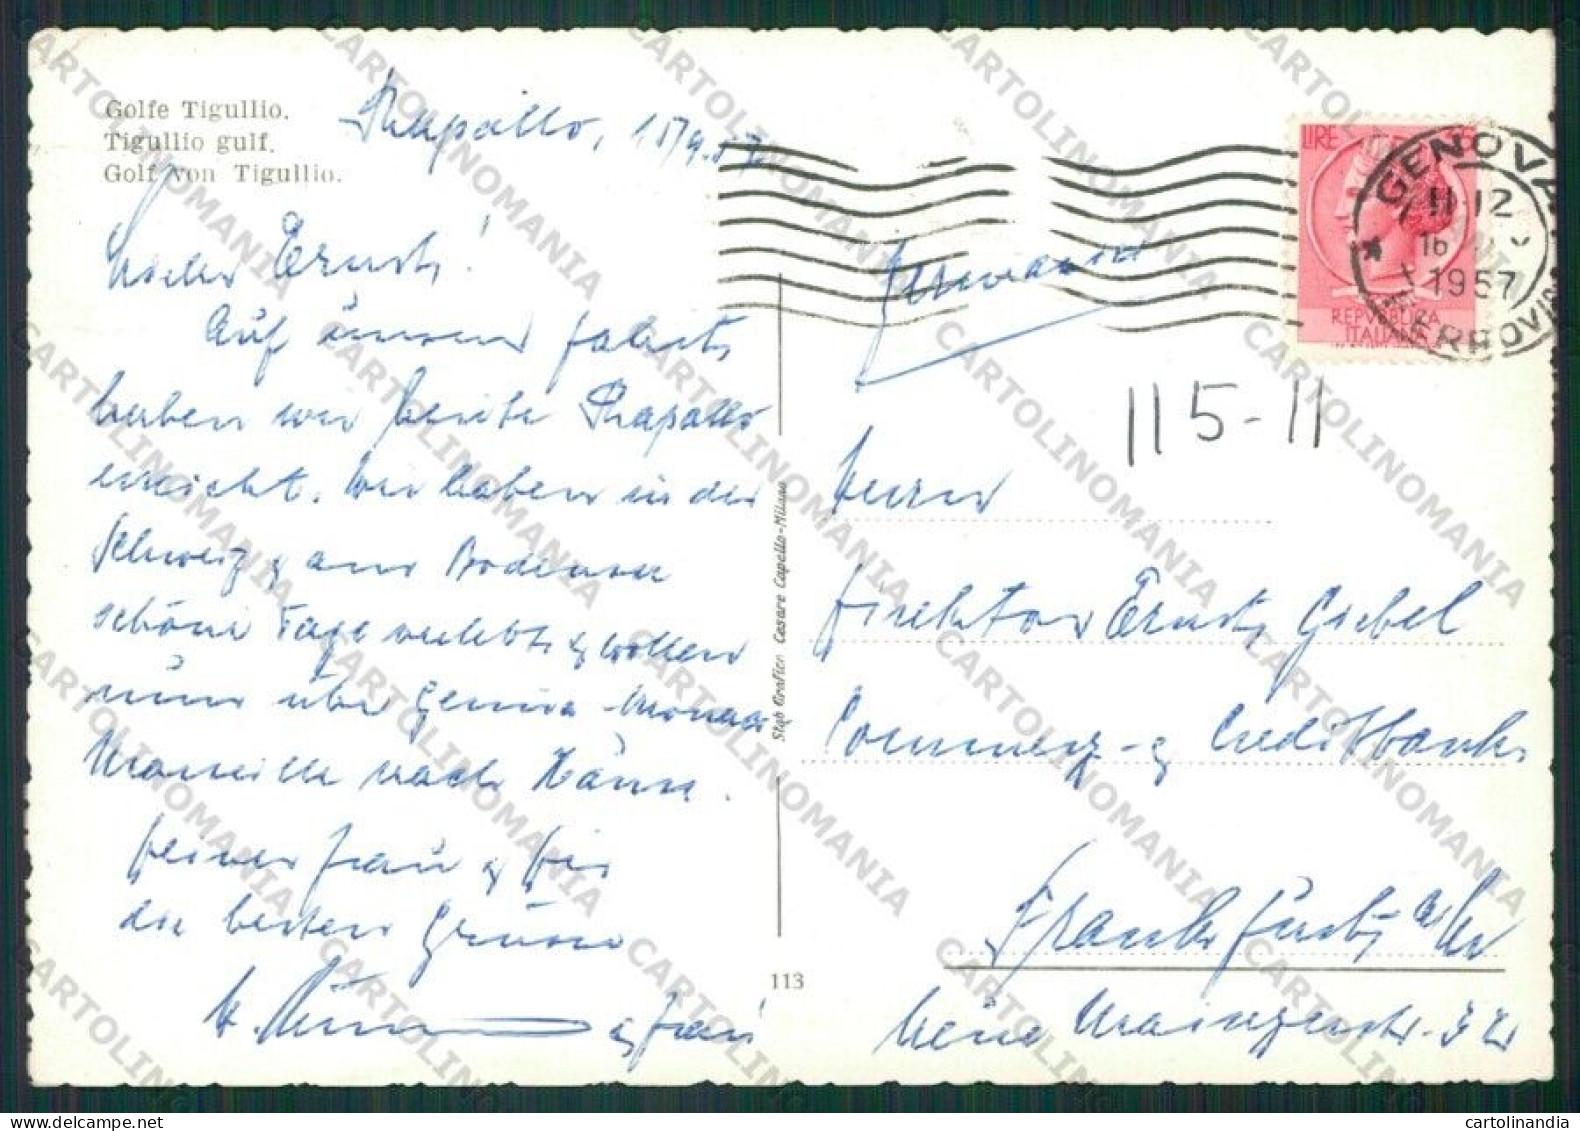 Golfe Tigullio.
Tigullio gulf.
Golf von Tigullio.
Rapallo, 15/9.57
Lieber Ernst!
Auf unserer Fahrt
haben wir heute Rapallo
erreicht. Wir haben in der
Schweiz & am Bodensee
schöne Tage verlebt & wollen
nun über Genua-Monaco
Marseille nach Hause.
Deiner Frau & Dir
die besten Grüsse
H.
& Frau
Stab Grafico Cesare Capello-Milano
113
LIRE
REPVBBLICA
ITALIANA
GENOVA
11 12
16
1957
FERROVIA
Germania
115-11
Herrn
Direktor Ernst Giebel
Commerz- & Creditbank
Frankfurt a/M
Neue Mainzerstr. 32
CARTOLINOMANIA
cartolinandia